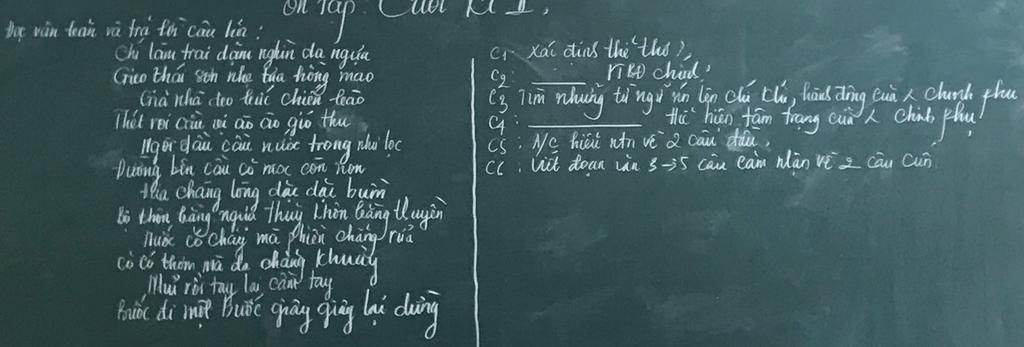 Ôn tập: Cuối Kì I,
Đọc văn bản và trả lời câu hỏi:
Chí làm trai dặm nghìn da ngựa
Gieo thái sơn nhẹ tựa hồng mao
Giã nhà đeo bức chiến bào
Thét roi cầu vị ào ào gió thu
Ngòi đầu cầu nước trong như lọc
Đường bên cầu cỏ mọc còn non
Đưa chàng lòng dặc dặc buồn
Bộ khôn bằng ngựa thuỷ khôn bằng thuyền
Nước có chảy mà phiền chẳng rửa
Cỏ có thơm mà dạ chẳng khuây
Nhủ rồi tay lại cầm tay
Bước đi một bước giây giây lại dừng
C1: Xác định thể thơ?
C2: ______ PTBĐ chính,
C3 Tìm những từ ngữ nói lên chí khí, hành động của chinh phu
C4: ______ thể hiện tâm trạng của chinh phụ
C5: N/c hiểu ntn về 2 câu đầu.
C6: Viết đoạn văn 3→5 câu cảm nhận về 2 câu cuối